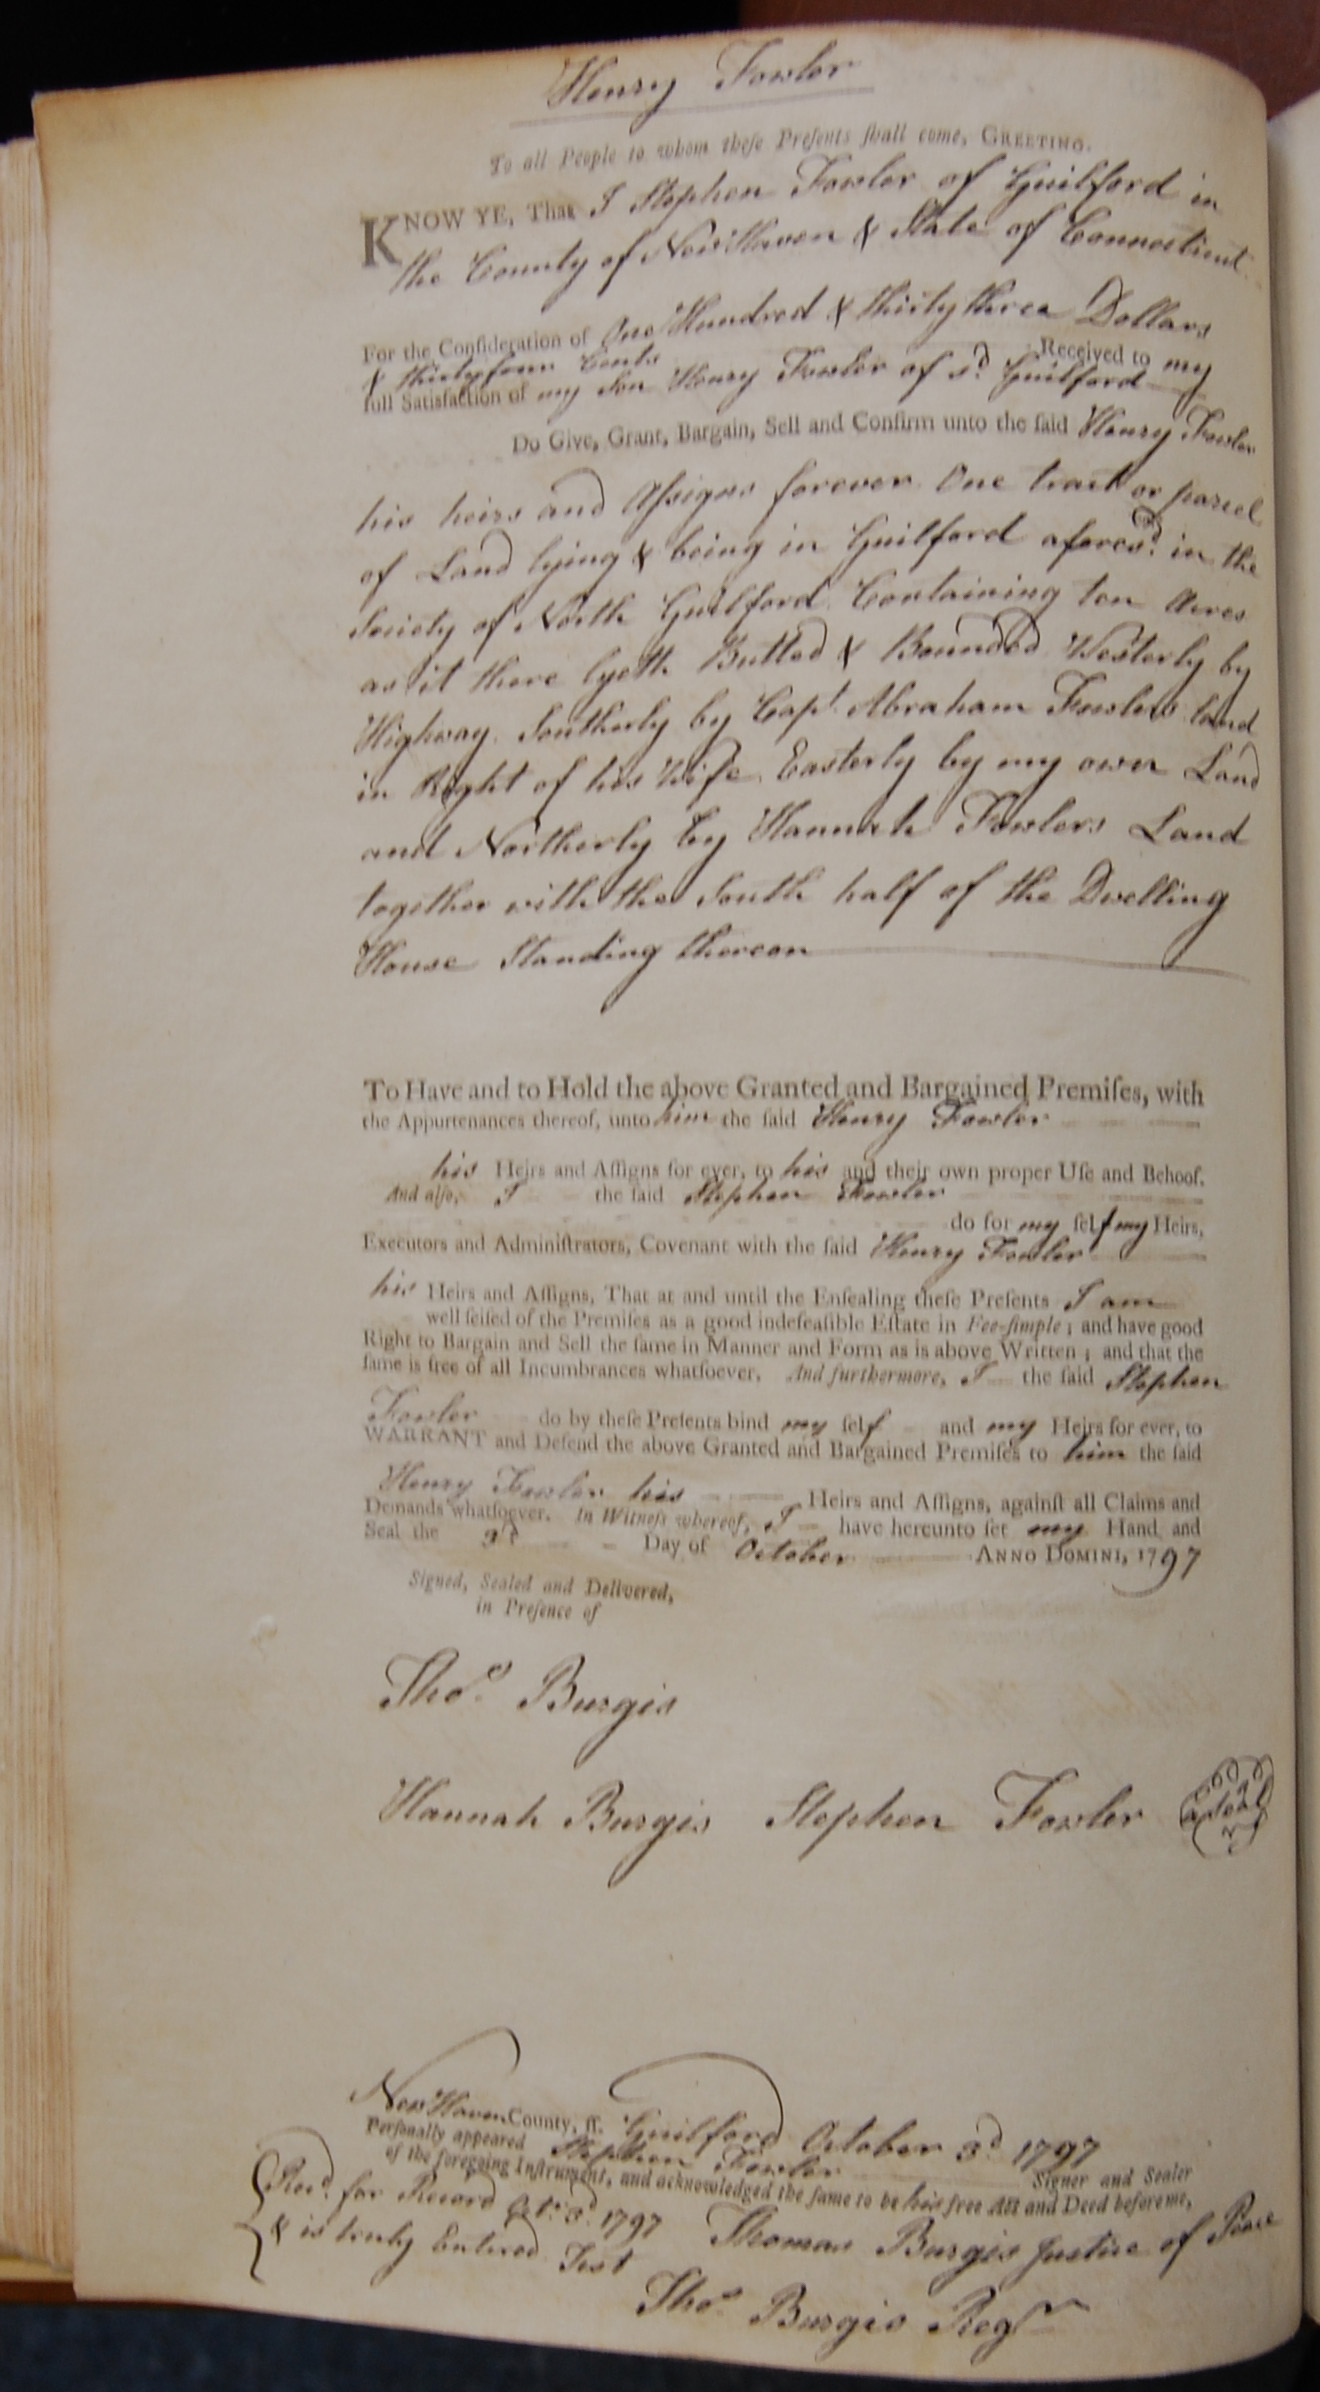 Henry Fowler
To all People to whom theſe Preſents ſhall come, GREETING.
KNOW YE, That I Stephen Fowler of Guilford in
the County of New Haven & State of Connecticut
For the Conſideration of One Hundred & thirty three Dollars
& thirty four Cents Received to my
full Satisfaction of my Son Henry Fowler of sd. Guilford
Do Give, Grant, Bargain, Sell and Confirm unto the ſaid Henry Fowler
his heirs and Aſsigns forever One tract or parcel
of Land lying & being in Guilford aforesd. in the
Society of North Guilford Containing ten Acres
as it there lyeth Butted & Bounded Westerly by
Highway. Southerly by Capt. Abraham Fowlers land
in Right of his Wife Easterly by my own Land
and Northerly by Hannah Fowlers Land
together with the South half of the Dwelling
House Standing thereon
To Have and to Hold the above Granted and Bargained Premiſes, with
the Appurtenances thereof, unto him the ſaid Henry Fowler
his Heirs and Aſſigns for ever, to his and their own proper Uſe and Behoof.
And alſo, I the ſaid Stephen Fowler
do for my ſelf my Heirs,
Executors and Adminiſtrators, Covenant with the ſaid Henry Fowler
his Heirs and Aſſigns, That at and until the Enſealing theſe Preſents I am
well ſeiſed of the Premiſes as a good indefeaſible Eſtate in Fee-ſimple; and have good
Right to Bargain and Sell the ſame in Manner and Form as is above Written; and that the
ſame is free of all Incumbrances whatſoever. And furthermore, I the ſaid Stephen
Fowler do by theſe Preſents bind my ſelf and my Heirs for ever, to
WARRANT and Defend the above Granted and Bargained Premiſes to him the ſaid
Henry Fowler his Heirs and Aſſigns, againſt all Claims and
Demands whatſoever. In Witneſs whereof, I have hereunto ſet my Hand and
Seal the 3d Day of October ANNO DOMINI, 1797
Signed, Sealed and Delivered,
in Preſence of
Thos. Burgis
Hannah Burgis Stephen Fowler a Seal
New Haven County, ſſ. Guilford October 3d 1797
Perſonally appeared Stephen Fowler Signer and Sealer
of the foregoing Inſtrument, and acknowledged the ſame to be his free Act and Deed before me,
Recd. for Record Octr. 3d. 1797 Thomas Burgis Justice of Peace
& is truly Entered Test
Thos. Burgis Regr